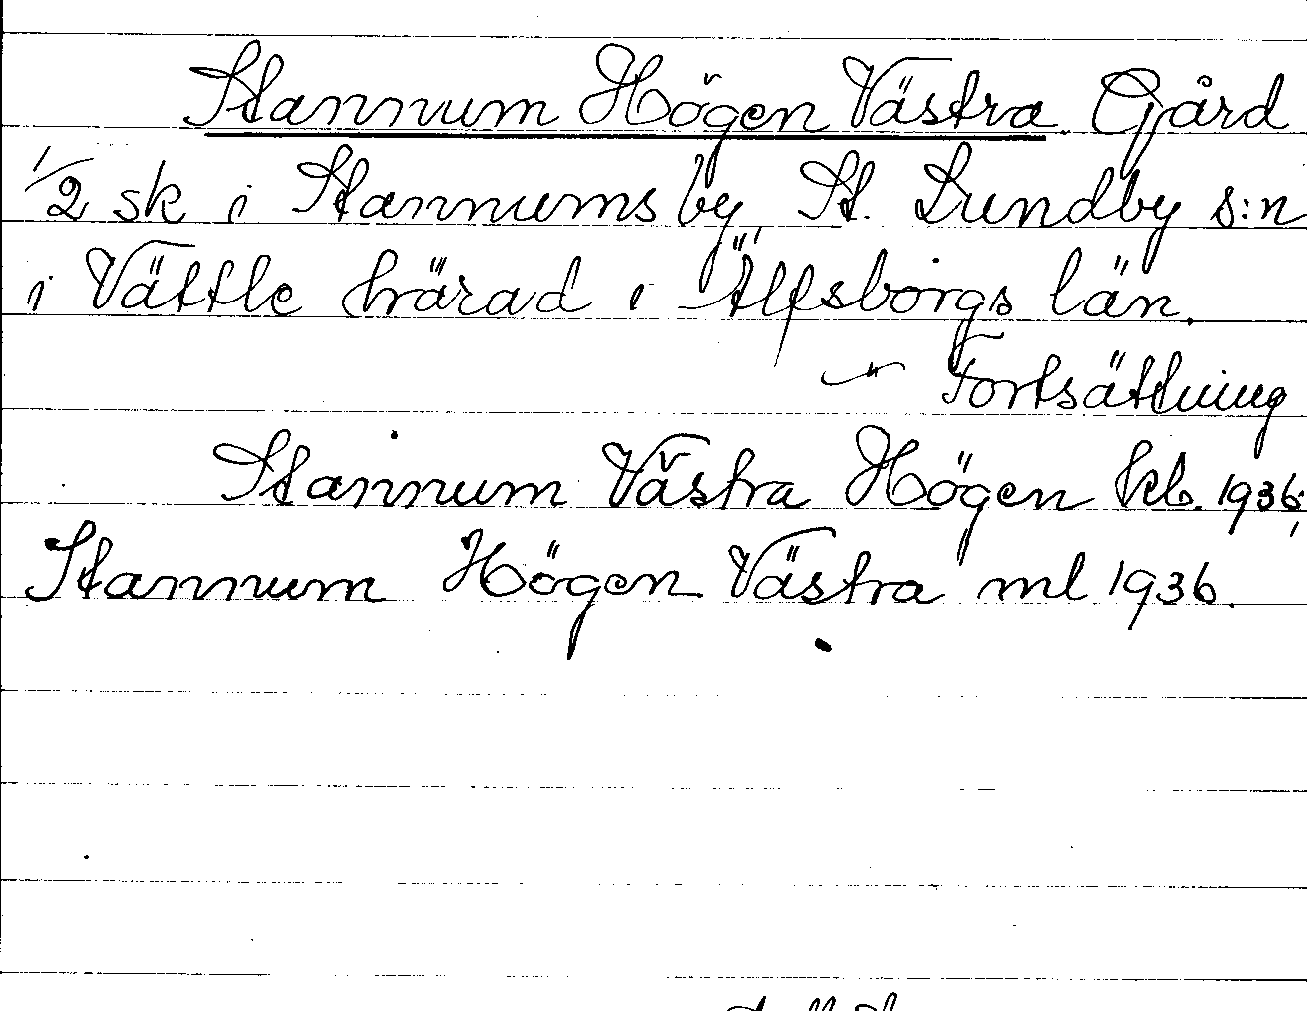 Stannum Högen Västra. Gård
1/2 sk i Stannums by St. Lundby s:n
i Vättle härad i Älfsborgs län.
–"– Fortsättning
Stannum Västra Högen kb. 1936;
Stannum Högen Västra ml 1936.